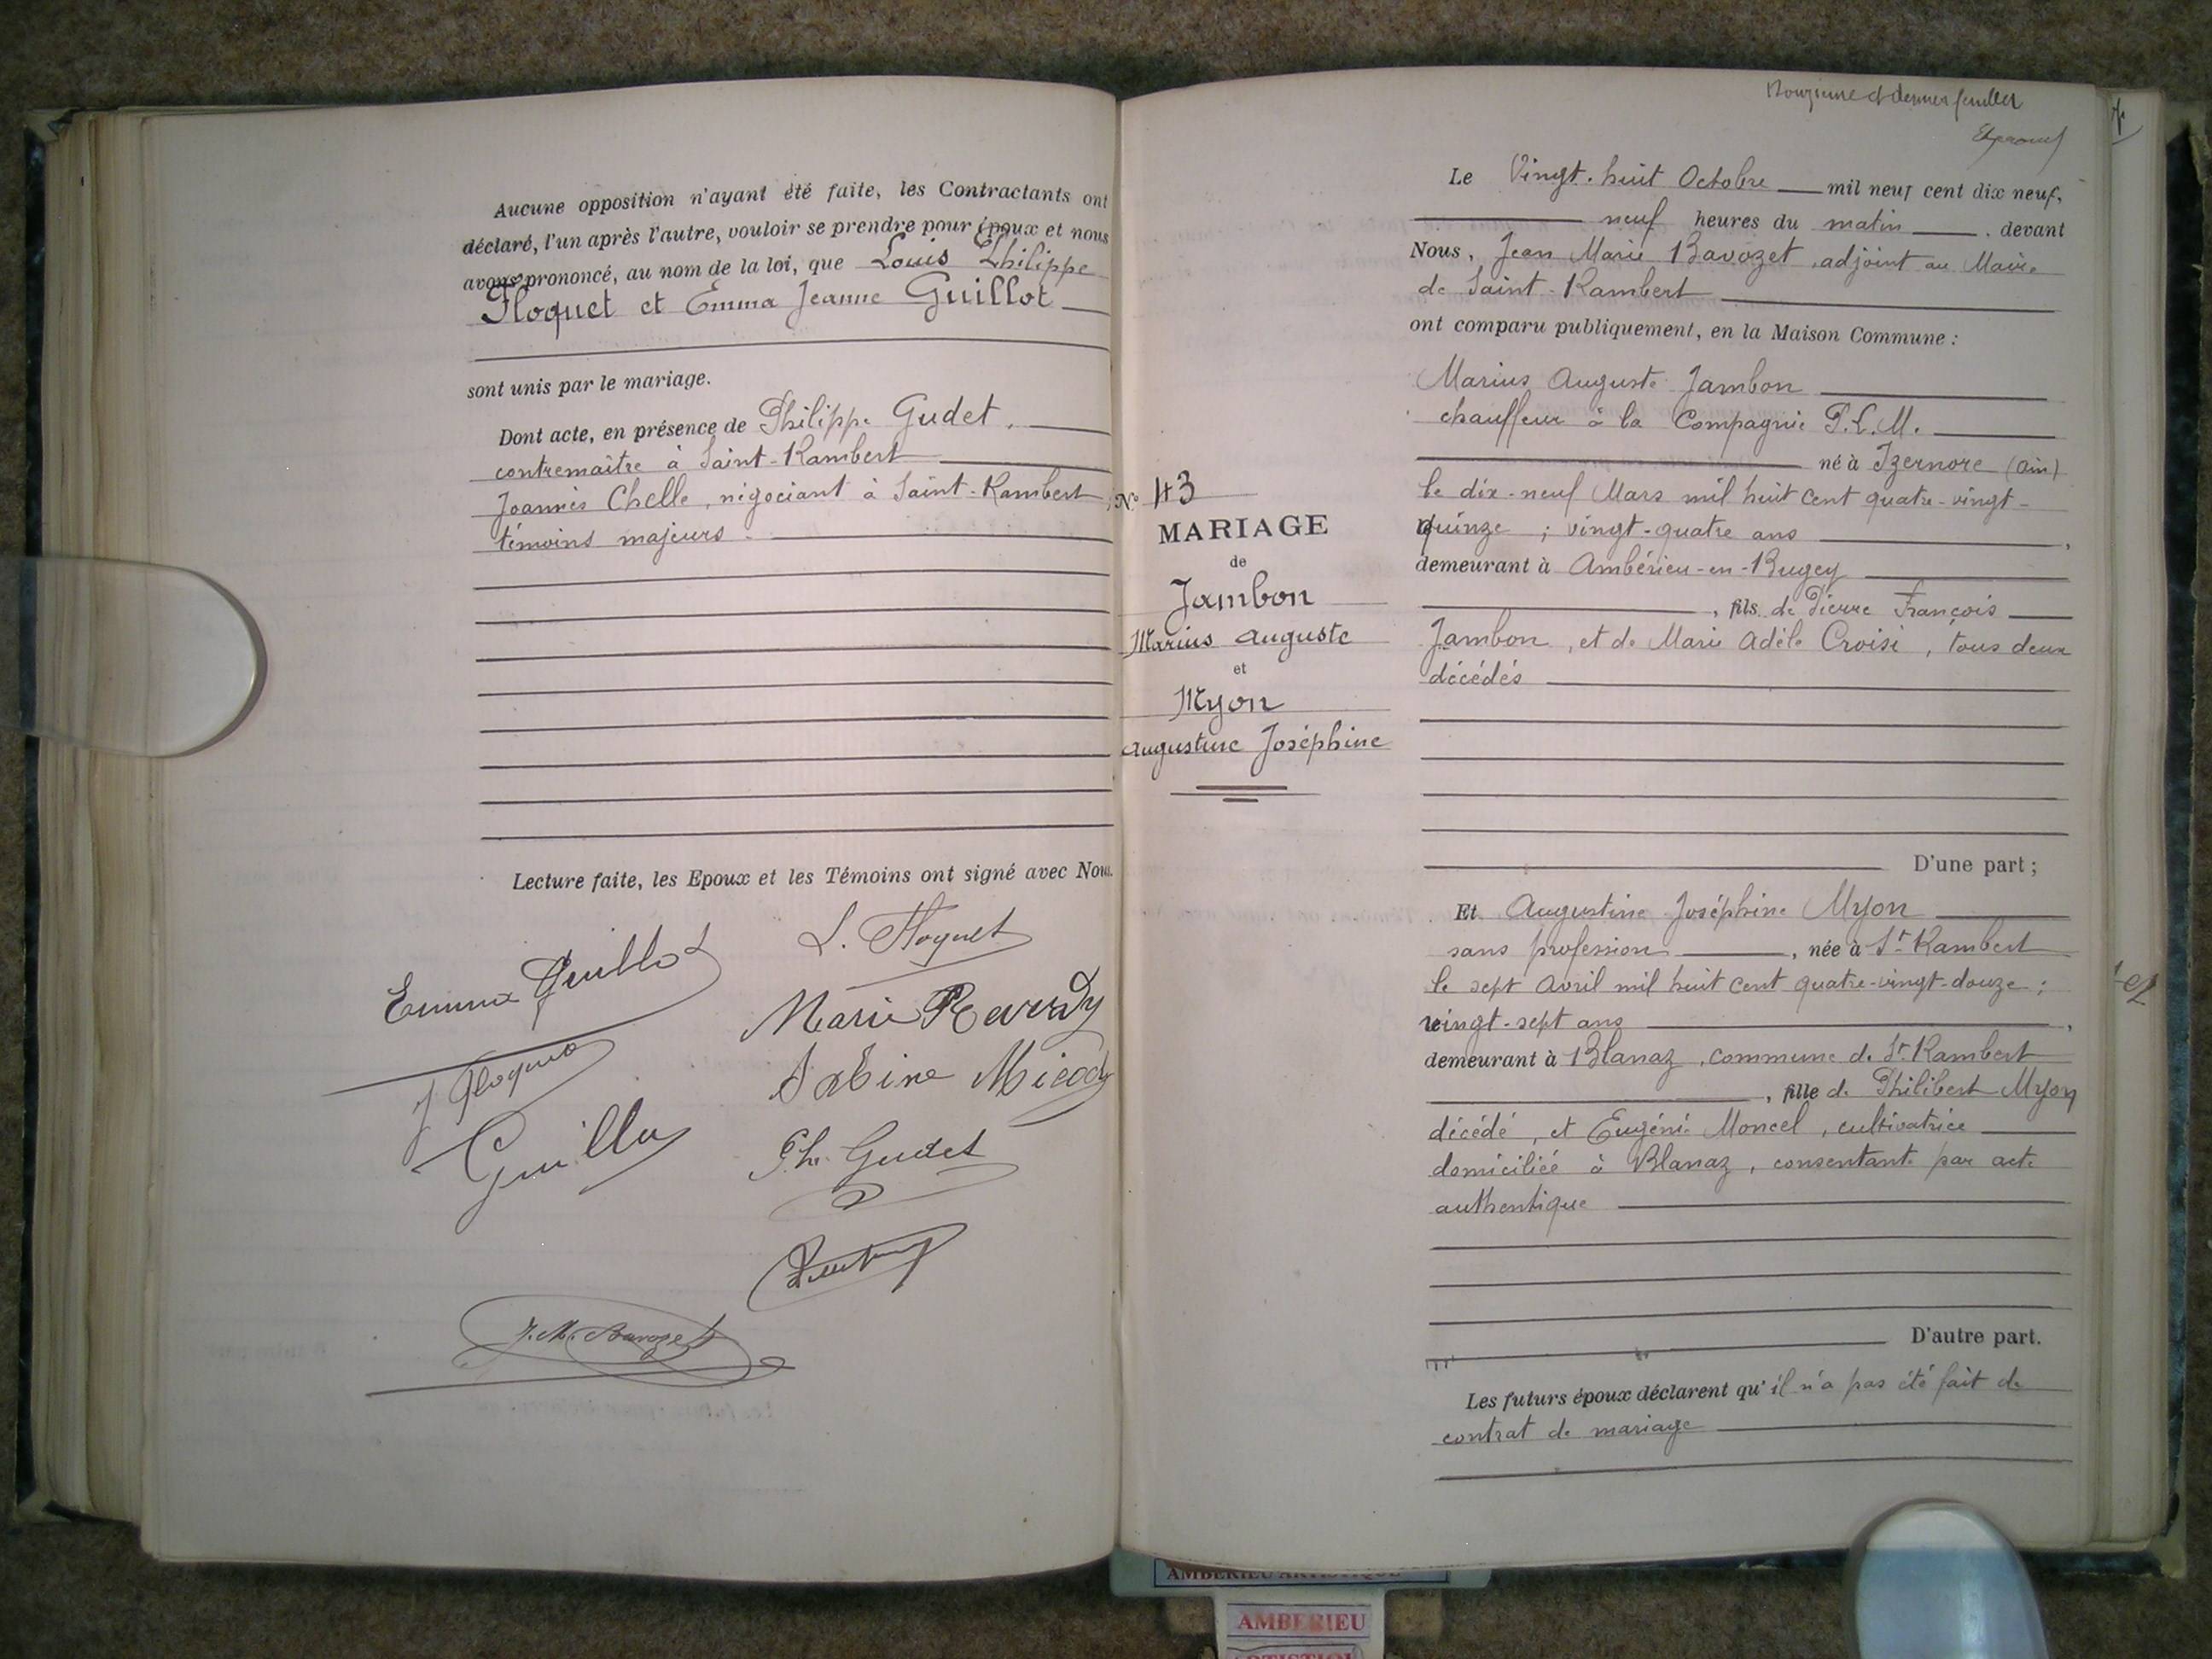 Aucune opposition n'ayant été faite, les Contractants ont
déclaré, l'un après l'autre, vouloir se prendre pour époux et nous
avons prononcé, au nom de la loi, que Louis Philippe
Floquet et Emma Jeanne Guillot
sont unis par le mariage.
Dont acte, en présence de Philippe Gudet,
contremaître à Saint-Rambert
Joannès Chelle, négociant à Saint-Rambert,
témoins majeurs.
Lecture faite, les Epoux et les Témoins ont signé avec Nous.
L. Floquet
Emma Guillot
Marie Ravdy
J Floquet
Sabine Micody
Guillot
Ph. Gudet
J. M. Bavozet
Douzième et dernier feuillet
Le Vingt-huit Octobre mil neuf cent dix neuf,
neuf heures du matin, devant
Nous, Jean Marie Bavozet, adjoint au Maire
de Saint-Rambert
ont comparu publiquement, en la Maison Commune :
Marius Auguste Jambon
chauffeur à la Compagnie P.L.M.
né à Izernore (Ain)
le dix-neuf Mars mil huit cent quatre-vingt-
quinze ; vingt-quatre ans,
demeurant à Ambérieu-en-Bugey
, fils de Pierre François
Jambon, et de Marie Adèle Croisi, tous deux
décédés
N° 43
MARIAGE
de
Jambon
Marius Auguste
et
Myon
Augustine Joséphine
D'une part ;
Et Augustine Joséphine Myon
sans profession, née à St-Rambert
le sept Avril mil huit cent quatre-vingt-douze ;
vingt-sept ans,
demeurant à Blanaz, commune de St-Rambert
, fille de Philibert Myon
décédé, et Eugénie Moncel, cultivatrice
domiciliée à Blanaz, consentante par acte
authentique
D'autre part.
Les futurs époux déclarent qu'il n'a pas été fait de
contrat de mariage
AMBERIEU ARTISTIQUE
AMBERIEU